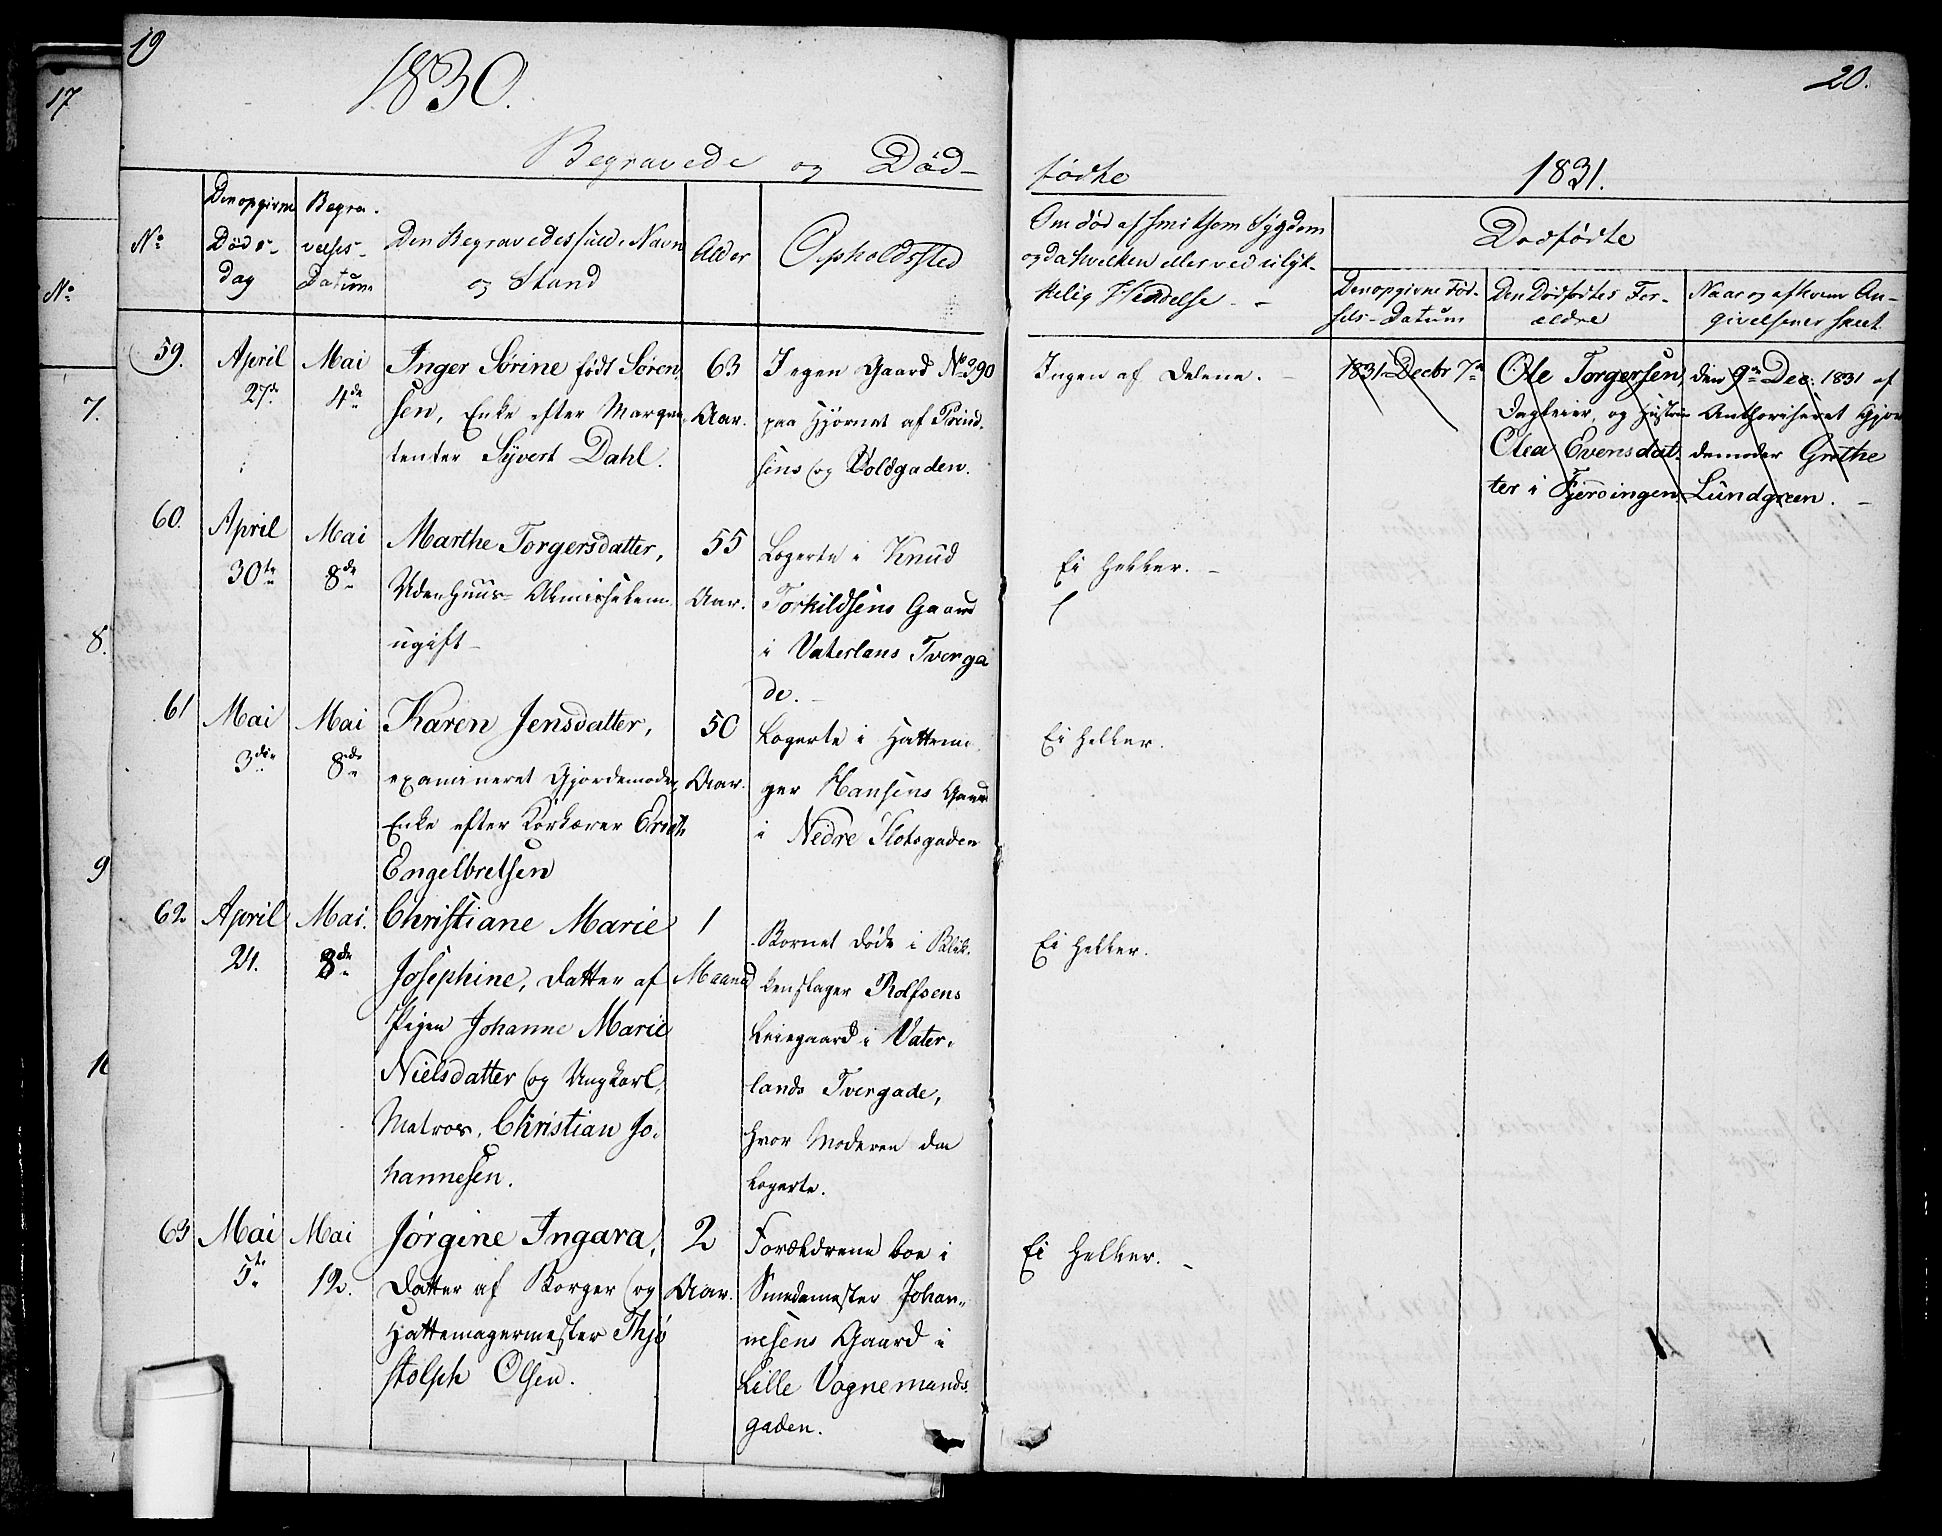 19
17
1830.
20.
Begravede og Død-
fødte
1831.
No
Den opgivne
Døds-
dag
Begra-
velses-
Datum
Den Begravedes fulde Navn
og Stand
Alder
Opholdssted
Om død af smitsom Sygdom
og da hvilken eller ved ulyk-
kelig Hendelse. -
Dødfødte
Den opgivne Fød-
sels-Datum
Den Dødfødtes For-
ældre
Naar og af hvem An-
givelsener skeet
No
7.
8.
9
10
59.
April
27de
Mai
4de
Inger Sørine født Søren-
sen, Enke efter Marque-
tenter Syvert Dahl.
63
Aar.
I egen Gaard No 290
paa Hjørnet af Prind-
sens og Voldgaden.
Ingen af Delene. -
1831 Decbr 7de
Ole Torgersen,
Dagleier, og Hustrue
Olea Evensdat-
ter i Fjerdingen
den 9de Dec. 1831 af
Authoriseret Gjor-
demoder Grethe
Lundgreen. -
60.
April
30te
Mai
8de
Marthe Torgersdatter,
Udenhuus- Almisselem
ugift -
55
Aar.
Logerte i Knud
Torkildsens Gaard
i Vaterlans Tverga
de. -
Ei heller. -
61
Mai
3die
Mai
8de
Karen Jensdatter,
examineret Gjordemoder,
Enke efter Kørkærer Erich
Engelbretsen
50
Aar.
Logerte i Hattema-
ger Hansens Gaard
i Nedre Slotsgaden
Ei heller.
62
April
24.
Mai.
8de
Christiane Marie
Josephine, Datter af
Pigen Johanne Marie
Nielsdatter og Ungkarl,
Matros, Christian Jo-
hannesen.
1
Maaned
Barnet døde i Blik-
kenslager Rolfsens
Leiegaard i Vater-
lands Tvergade,
hvor Moderen da
logerte.
Ei heller.
63
Mai
5te
Mai
12.
Jørgine Ingara,
Datter af Borger og
Hattemagermester Thjø
stolph Olsen.
2
Aar.
Forældrene boe i
Smedemester Johan-
nesens Gaard i
Lille Vognemands-
gaden.
Ei heller. -